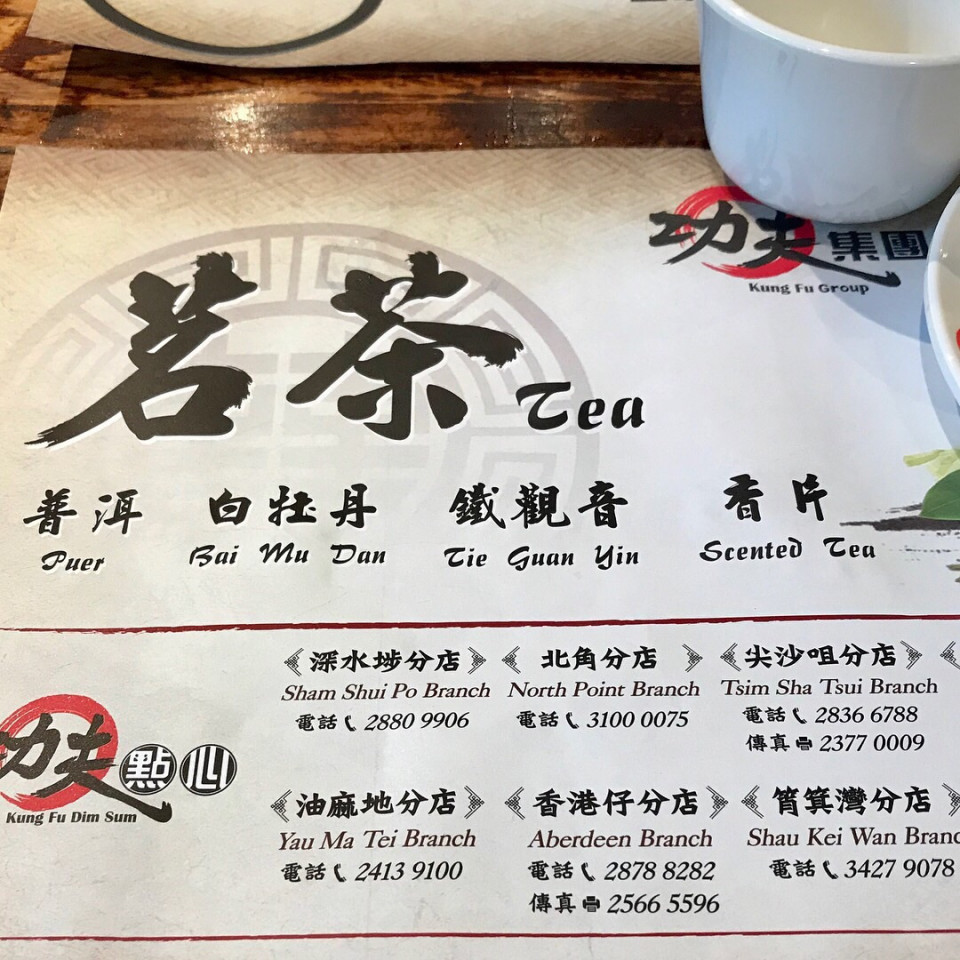 功夫集團
Kung Fu Group
茗茶 Tea
普洱 白牡丹 鐵觀音 香片
Puer Bai Mu Dan Tie Guan Yin Scented Tea
功夫點心
Kung Fu Dim Sum
深水埗分店 北角分店 尖沙咀分店
Sham Shui Po Branch North Point Branch Tsim Sha Tsui Branch
電話 2880 9906 電話 3100 0075 電話 2836 6788
傳真 2377 0009
油麻地分店 香港仔分店 筲箕灣分店
Yau Ma Tei Branch Aberdeen Branch Shau Kei Wan Branc
電話 2413 9100 電話 2878 8282 電話 3427 9078
傳真 2566 5596